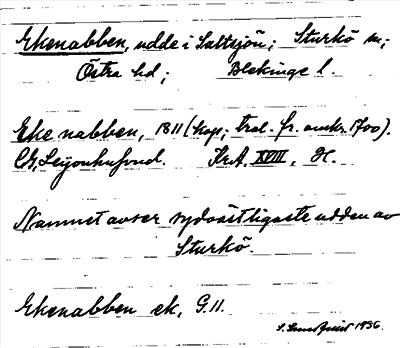 Ekenabben, udde i Saltsjön; Sturkö sn;
Östra hd; Blekinge l.
Eke nabben, 1811 (kop; trol. fr. omkr. 1700).
Leijonhufvud. KrA. XVIII, H.
Namnet avser sydvästligaste udden av
Sturkö.
Ekenabben ek, G.11.
1936